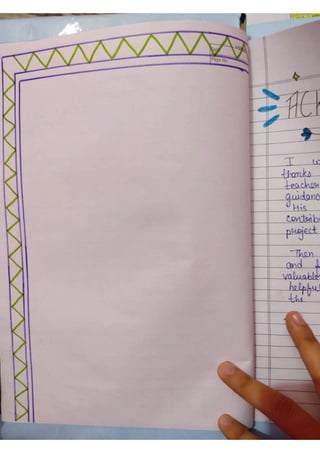 Page No.
ACK
I w
thanks
teacher
guidanc
His
contrib
project
Then
and f
valuable
helpful
the